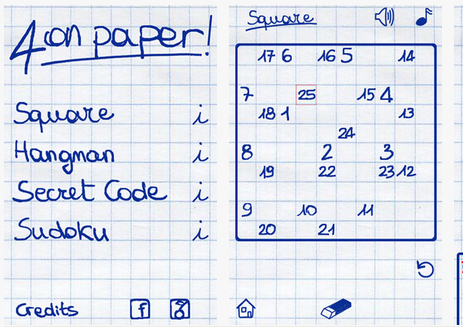 4 on paper!
Square i
Hangman i
Secret Code i
Sudoku i
Credits f
Square
17 6 16 5 14
7 25 15 4
18 1 13
24
8 2 3
19 22 23 12
9 10 11
20 21